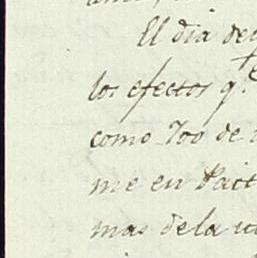 El dia de
los efectos q.
como 700 de
me en Pait
mas dela